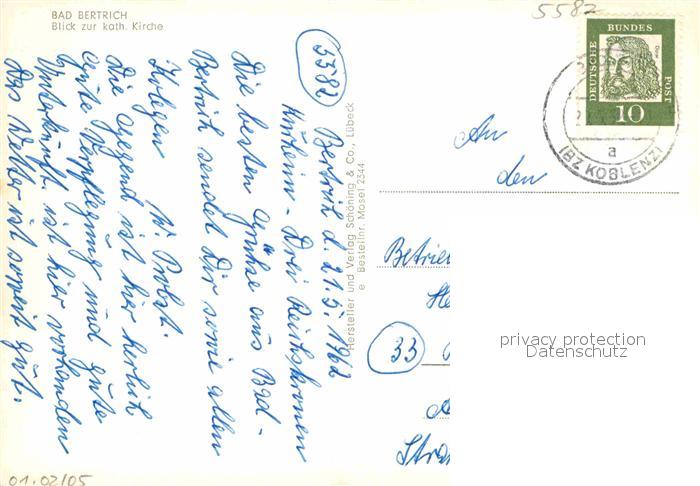 BAD BERTRICH
Blick zur kath. Kirche
5582
5582
Bertrich d. 21.5.1962
Kurheim - Drei Reichskronen
Die besten Grüße aus Bad-
Bertrich sendet Dir sowie allen
Kolegen W. Probst.
Die Gegend ist hier herlich
Gute Verpflegung und gute
Unterkunft ist hier vorhanden
Das Wetter ist soweit gut.
Hersteller und Verlag Schöning & Co., Lübeck
e Bestellnr. Mosel 2344
DEUTSCHE BUNDES POST
Dürer
10
a
(BZ KOBLENZ)
An
den
Betrie
33
Stra
privacy protection
Datenschutz
01.02/05